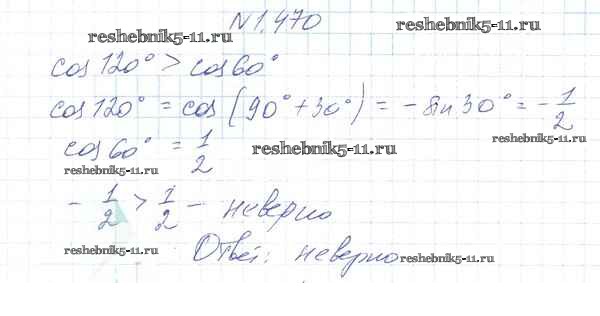 №1.470
reshebnik5-11.ru reshebnik5-11.ru
cos 120° > cos 60°
cos 120° = cos (90° + 30°) = - sin 30° = - 1/2
reshebnik5-11.ru
cos 60° = 1/2 reshebnik5-11.ru
reshebnik5-11.ru
- 1/2 > 1/2 - неверно
Ответ: неверно
reshebnik5-11.ru reshebnik5-11.ru